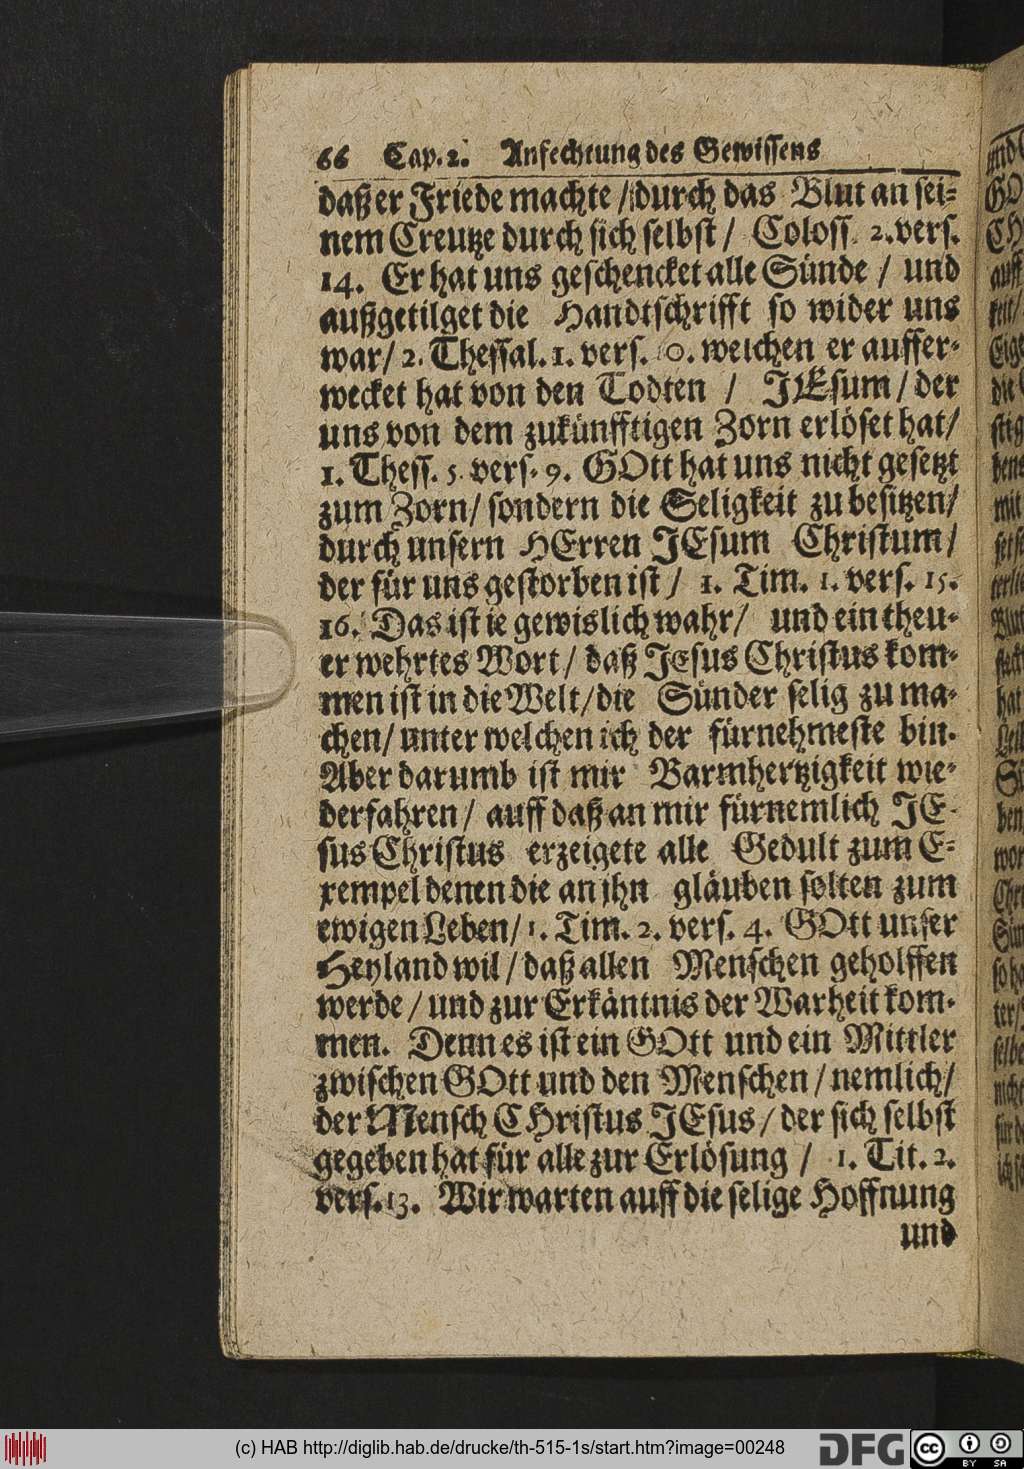 66 Cap. 2. Anfechtung des Gewissens
daß er Friede machte / durch das Blut an sei=
nem Creutze durch sich selbst / Coloss. 2. vers.
14. Er hat uns geschencket alle Sünde / und
außgetilget die Handtschrifft so wider uns
war / 2. Thessal. 1. vers. 10. welchen er auffer=
wecket hat von den Todten / JEsum / der
uns von dem zukünfftigen Zorn erlöset hat /
1. Thess. 5. vers. 9. GOtt hat uns nicht gesetzt
zum Zorn / sondern die Seligkeit zu besitzen /
durch unsern HErren JEsum Christum /
der für uns gestorben ist / 1. Tim. 1. vers. 15.
16. Das ist ie gewislich wahr / und ein theu=
er wehrtes Wort / daß JEsus Christus kom=
men ist in die Welt / die Sünder selig zu ma=
chen / unter welchen ich der fürnehmeste bin.
Aber darumb ist mir Barmhertzigkeit wie=
derfahren / auff daß an mir fürnemlich JE=
sus Christus erzeigete alle Gedult zum E=
xempel denen die an jhn gläuben solten zum
ewigen Leben / 1. Tim. 2. vers. 4. GOtt unser
Heyland wil / daß allen Menschen geholffen
werde / und zur Erkäntnis der Warheit kom=
men. Denn es ist ein GOtt und ein Mittler
zwischen GOtt und den Menschen / nemlich /
der Mensch CHristus JEsus / der sich selbst
gegeben hat für alle zur Erlösung / 1. Tit. 2.
vers. 13. Wir warten auff die selige Hoffnung
und
(c) HAB http://diglib.hab.de/drucke/th-515-1s/start.htm?image=00248
DFG
cc BY SA